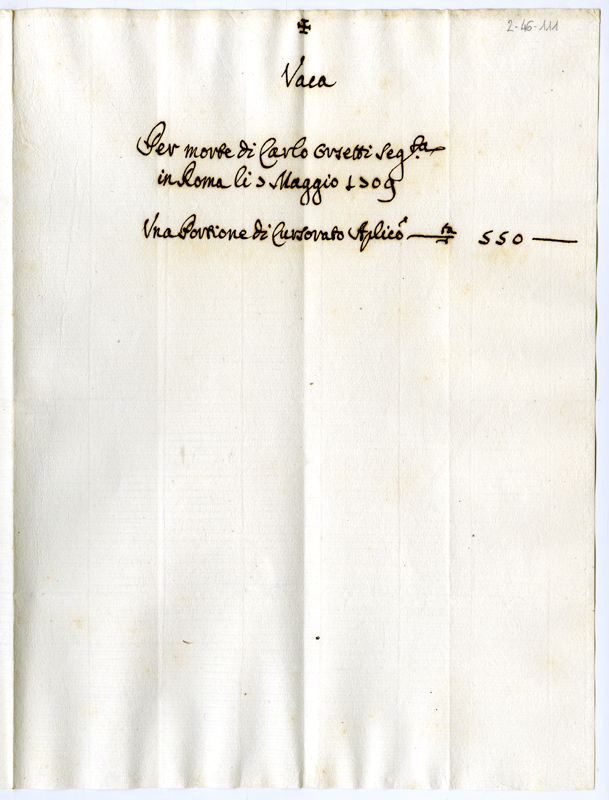 2-46-111
✠
Vaca
Per morte di Carlo Orsetti Seg.ta
in Roma li 7 Maggio 1709
Una Portione di Cursorato Aplico 550